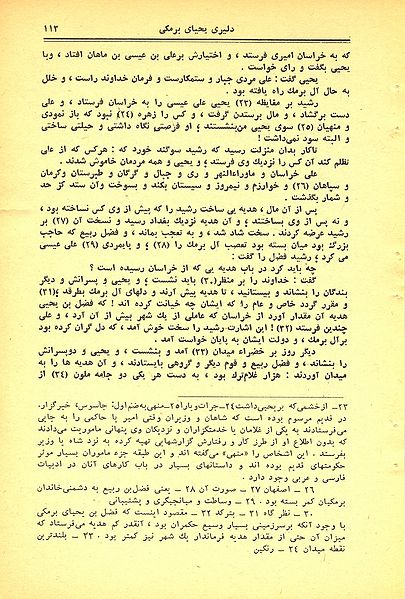 دلیری یحیای برمکی ۱۱۳
که به خراسان امیری فرستد ، و اختیارش برعلی بن عیسی بن ماهان افتاد ، وبا
یحیی بگفت و رای خواست .
یحیی گفت : علی مردی جبار و ستمکارست و فرمان خداوند راست ، و خلل
به حال آل برمك راه یافته بود .
رشید بر مغایظهٔ (۲۳) یحیی علی عیسی را به خراسان فرستاد ، و علی
دست برگشاد ، و مال برستدن گرفت ، و کس را زهره (۲۴) نبود که باز نمودی
و منهیان (۲۵) سوی یحیی می‌نبشتند ؛ او فرصتی نگاه داشتی و حیلتی ساختی
و البته سود نمی‌داشت !
تاکار بدان منزلت رسید که رشید سوگند خورد که : هرکس که از علی
تظلم کند آن کس را نزدیك وی فرستد ؛ و یحیی و همه مردمان خاموش شدند .
علی خراسان و ماوراءالنهر و ری و جبال و گرگان و طبرستان وکرمان
و سپاهان (۲۶) و خوارزم و نیمروز و سیستان بکند و بسوخت وآن ستد کز حد
و شمار بگذشت .
پس از آن مال ، هدیه یی ساخت رشید را که پیش از وی کس نساخته بود ،
و نه پس از وی بساختند ؛ و آن هدیه نزدیك بغداد رسید و نسخت آن (۲۷) بر
رشید عرضه کردند . سخت شاد شد ، و به تعجب بماند ، و فضل ربیع که حاجب
بزرگ بود میان بسته بود تعصب آل برمك را (۲۸) ؛ و پایمردی (۲۹) علی عیسی
می کرد ؛ رشید فضل را گفت :
چه باید کرد در باب هدیه یی که از خراسان رسیده است ؟
گفت : خداوند را بر منظر(۳۰) باید نشست ؛ و یحیی و پسرانش و دیگر
بندگان را بنشاند و بیستانند ، تا هدیه پیش آرند و دلهای آل برمك بطرقد ؛(۳۱)
و مقرر گردد خاص و عام را که ایشان چه خیانت کرده اند ! که فضل بن یحیی
هدیه آن مقدار آورد از خراسان که عاملی از یك شهر بیش از آن آرد ، و علی
چندین فرستد (۳۲) ! این اشارت رشید را سخت خوش آمد ، که دل گران کرده بود
برآل برمك ، و دولت ایشان به پایان خواست آمد .
دیگر روز بر خضراء میدان (۳۳) آمد و بنشست ، و یحیی و دوپسرانش
را بنشاند ، و فضل ربیع و قوم دیگر و گروهی بایستادند ، و آن هدیه ها را به
میدان آوردند : هزار غلام‌ترك بود ، به دست هر یکی دو جامه ملون (۳۴) از
۲۳ـ ازخشمی‌که بریحیی‌داشت۲۴ـ‌جرات‌ویارا۲۵ـ‌منهی‌به‌ضم‌اول: جاسوس، خبرگزار.
در قدیم مرسوم بوده است که شاهان و وزیران وقتی امیر یا حاکمی را به جایی
می‌فرستادند به یکی از غلامان یا خدمتگزاران و نزدیکان وی پنهانی ماموریت می‌دادند
که بدون اطلاع او از طرز کار و رفتارش گزارشهایی تهیه کرده به نزد شاه یا وزیر
بفرستد . این اشخاص را «منهی» می‌گفته اند و این طبقه جزء ماموران بسیار موثر
حکومتهای قدیم بوده اند و داستانهای بسیار در باب کارهای آنان در ادبیات
فارسی و عربی وجود دارد .
۲۶ ـ اصفهان ۲۷ ـ صورت آن ۲۸ ـ یعنی فضل‌بن ربیع به دشمنی‌خاندان
برمکیان کمر بسته بود . ۲۹ ـ وساطت و میانجیگری و پشتیبانی
۳۰ ـ نظر گاه ۳۱ ـ بترکد ۳۲ ـ مقصود اینست که فضل بن یحیای برمکی
با وجود آنکه برسرزمینی بسیار وسیع حکمران بود ، آنقدر کم هدیه می‌فرستاد که
میزان آن حتی از مقدار هدیه فرماندار یك شهر نیز کمتر بود . ۳۳ ـ بلندترین
نقطه میدان ۳۴ ـ رنگین